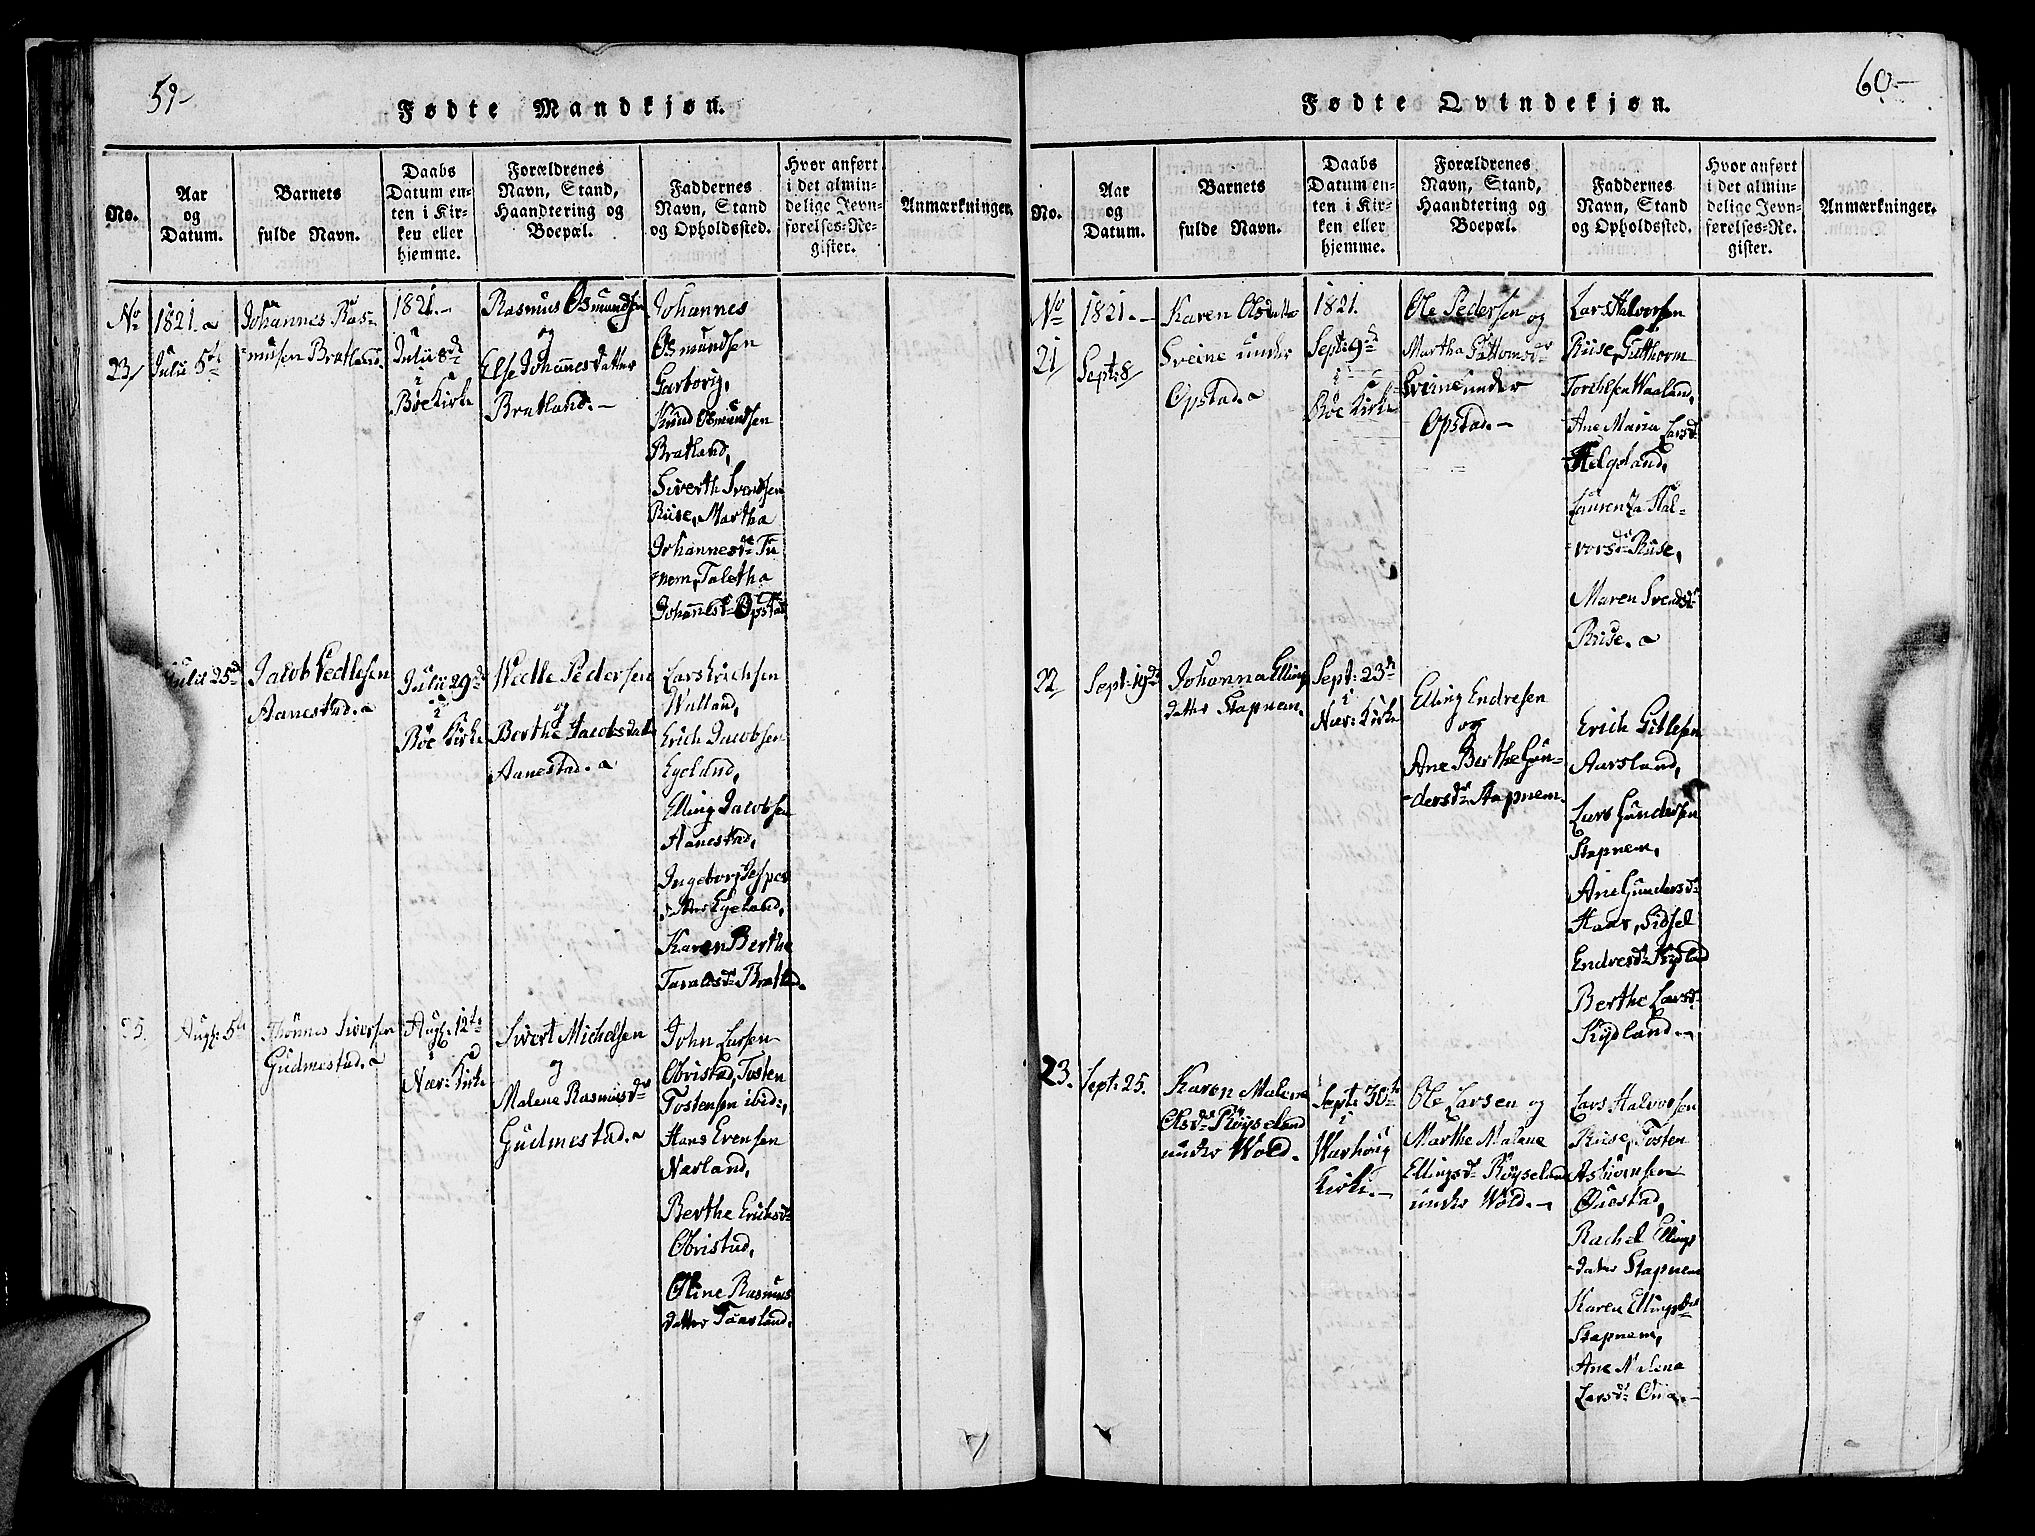 59-
Fødte Mandkjøn.
No.
Aar
og
Datum.
Barnets
fulde Navn.
Daabs
Datum en-
ten i Kir-
ken eller
hjemme.
Forældrenes
Navn, Stand,
Haandtering og
Boepæl.
Faddernes
Navn, Stand
og Opholdssted.
Hvor anført
i det almin-
delige Jevn-
førelses-Re-
gister.
Anmærkninger.
No
23/
1821.
Julii 5te
Johannes Ras-
musen Bratland.
1821.-
Julii 8de
i
Bøe Kirke
Rasmus Osmundsen
og
Else Johannesdatter
Bratland.-
Johannes
Osmundsen
Garborg,
Knud Osmundsen
Bratland,
Siverth Svendsen
Riise, Martha
Johannesdr Tu
nem, Taletha
Johannesdr Opstad
Julii 25de
Jacob Vedlesen
Aanestad.
Julii 29de
i
Bøe Kirke
Wedle Pedersen
og
Berthe Jacobsdatter
Aanestad.
Lars Erichsen
Wulland,
Erich Jacobsen
Egeland,
Elling Jacobsen
Aanestad,
Ingeborg Jesper
datter Egeland,
Karen Berthe
Taraldsdr Bratland.
25.
Augt: 5te
Thønnes Siversen
Gudmestad.
Augt: 12te
i
Nær: Kirke
Sivert Michelsen
og
Malene Rasmusdr
Gudmestad.
John Larsen
Obristad, Tosten
Tostensen ibid:,
Hans Evensen
Nærland,
Berthe Ericksdr
Obristad,
Oline Rasmus
datter Taarland.
60-
Fødte Qvindekjøn.
No.
Aar
og
Datum.
Barnets
fulde Navn.
Daabs
Datum en-
ten i Kir-
ken eller
hjemme.
Forældrenes
Navn, Stand,
Haandtering og
Boepæl.
Faddernes
Navn, Stand
og Opholdssted.
Hvor anført
i det almin-
delige Jevn-
førelses-Re-
gister.
Anmærkninger.
No
21/
1821.-
Sept: 8/
Karen Olsdatter
Sveine under
Opstad.
1821.
Sept: 9de
i
Bøe Kirke
Ole Pedersen og
Martha Guttormsdr
Sveine under
Opstad.-
Lars Halvorsen
Riise, Gutthorm
Torchelsen Waaland,
Ane Maria Larsdr
Helgeland,
Laurenza Hal-
vorsdr Riise,
Maren Svendsdr
Riise.
22/
Sept: 19de
Johanna Elling
datter Stapnem.
Sept: 23de
i
Nær: Kirke
Elling Endresen
og
Ane Berthe Gun-
dersdr Stapnem.
Erich Gitlesen
Aarsland,
Lars Gundersen
Stapnem,
Ane Gundersdr
Haar, Sidsel
Endresdr Kydland
Berthe Larsdr
Kydland.-
23.
Sept: 25.
Karen Malene
Olsdr Røyseland
under Wold.
Sept: 30te
i
Warhoug
Kirke.-
Ole Larsen og
Marthe Malene
Ellingsdr Røyseland
under Wold.-
Lars Halvorsen
Riise, Tosten
Asbiørnsen
Qvestad,
Rachel Ellings
datter Stapnem
Karen Ellingsdr
Stapnem,
Ane Malena
Larsdr Qvia.-